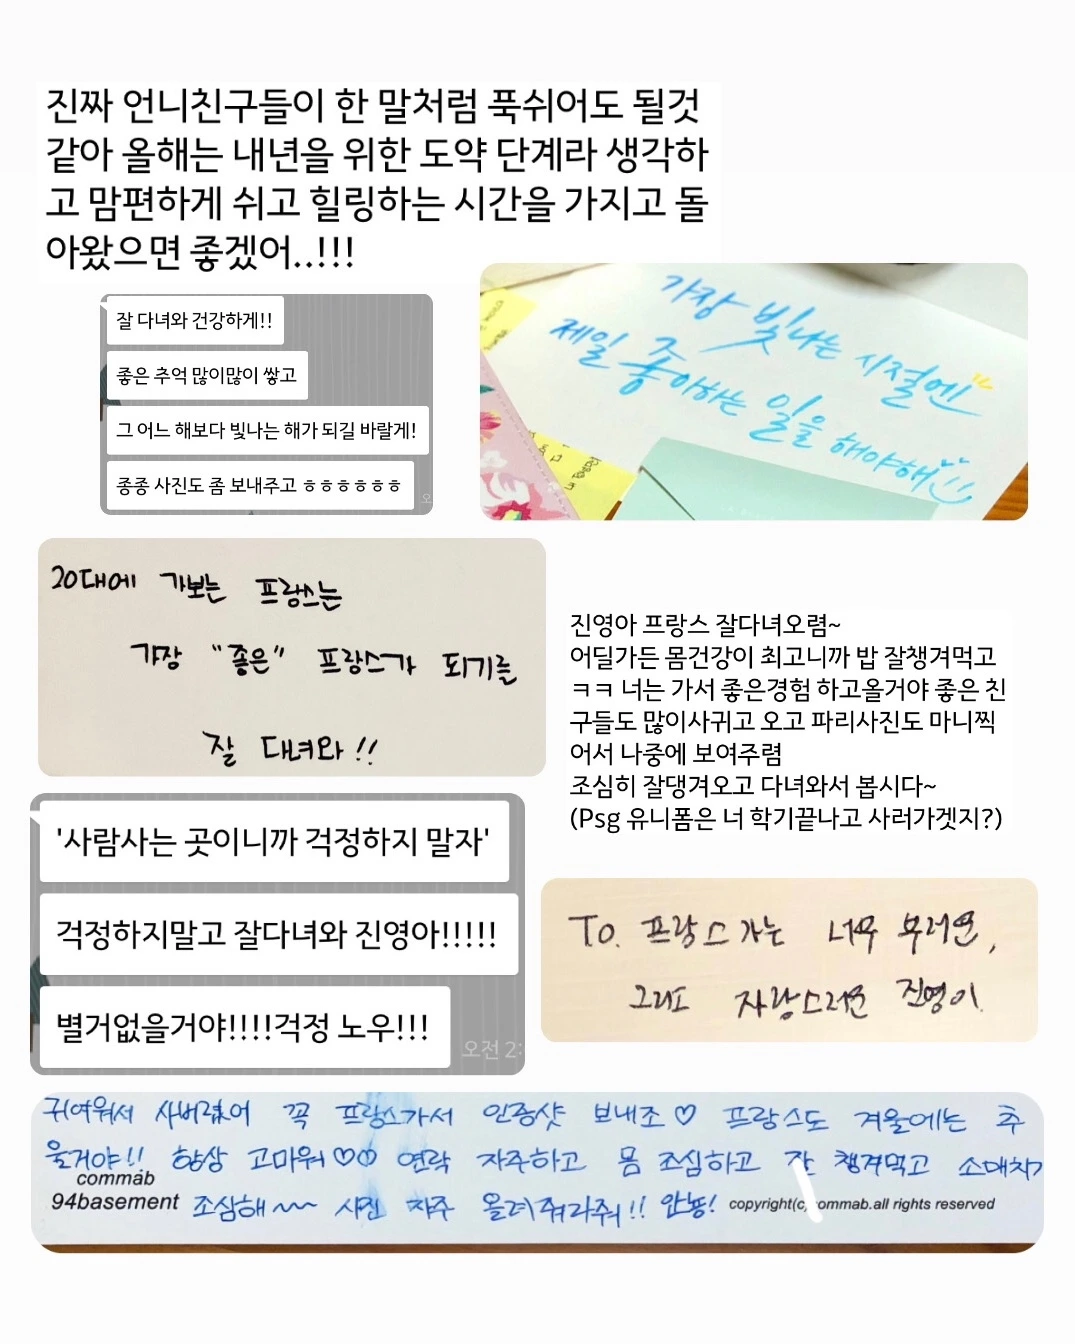 진짜 언니친구들이 한 말처럼 푹쉬어도 될것
같아 올해는 내년을 위한 도약 단계라 생각하
고 맘편하게 쉬고 힐링하는 시간을 가지고 돌
아왔으면 좋겠어..!!!
잘 다녀와 건강하게!!
좋은 추억 많이많이 쌓고
그 어느 해보다 빛나는 해가 되길 바랄게!
종종 사진도 좀 보내주고 ㅎㅎㅎㅎㅎㅎ
오
가장 빛나는 시절엔
제일 좋아하는 일을 해야해
20대에 가보는 프랑스는
가장 "좋은" 프랑스가 되기를
잘 다녀와!!
진영아 프랑스 잘다녀오렴~
어딜가든 몸건강이 최고니까 밥 잘챙겨먹고
ㅋㅋ 너는 가서 좋은경험 하고올거야 좋은 친
구들도 많이사귀고 오고 파리사진도 마니찍
어서 나중에 보여주렴
조심히 잘댕겨오고 다녀와서 봅시다~
(Psg 유니폼은 너 학기끝나고 사러가겟지?)
'사람사는 곳이니까 걱정하지 말자'
걱정하지말고 잘다녀와 진영아!!!!!
별거없을거야!!!!걱정 노우!!!
오전 2:
To. 프랑스 가는 너무 부러운,
그리고 자랑스러운 진영이.
귀여워서 사버렸어 꼭 프랑스가서 인증샷 보내조♡ 프랑스도 겨울에는 추
울거야!! 항상 고마워♡♡ 연락 자주하고 몸 조심하고 잘 챙겨먹고 소매치기
조심해~~ 사진 자주 올려줘라줘!! 안뇽!
commab
94basement
copyright(c)commab.all rights reserved